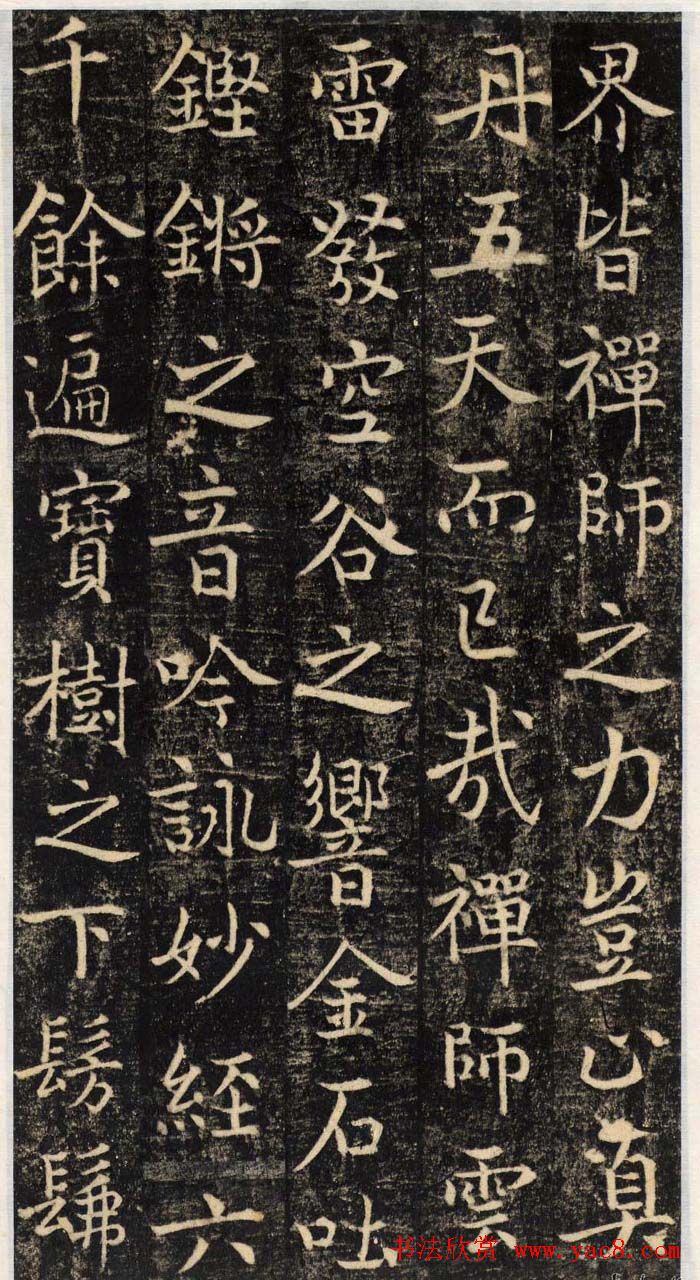 界皆禪師之力豈止真
丹五天而已哉禪師雲
雷發空谷之響金石吐
鏗鏘之音吟詠妙經六
千餘遍寶樹之下髣髴
书法欣赏 www.yac8.com